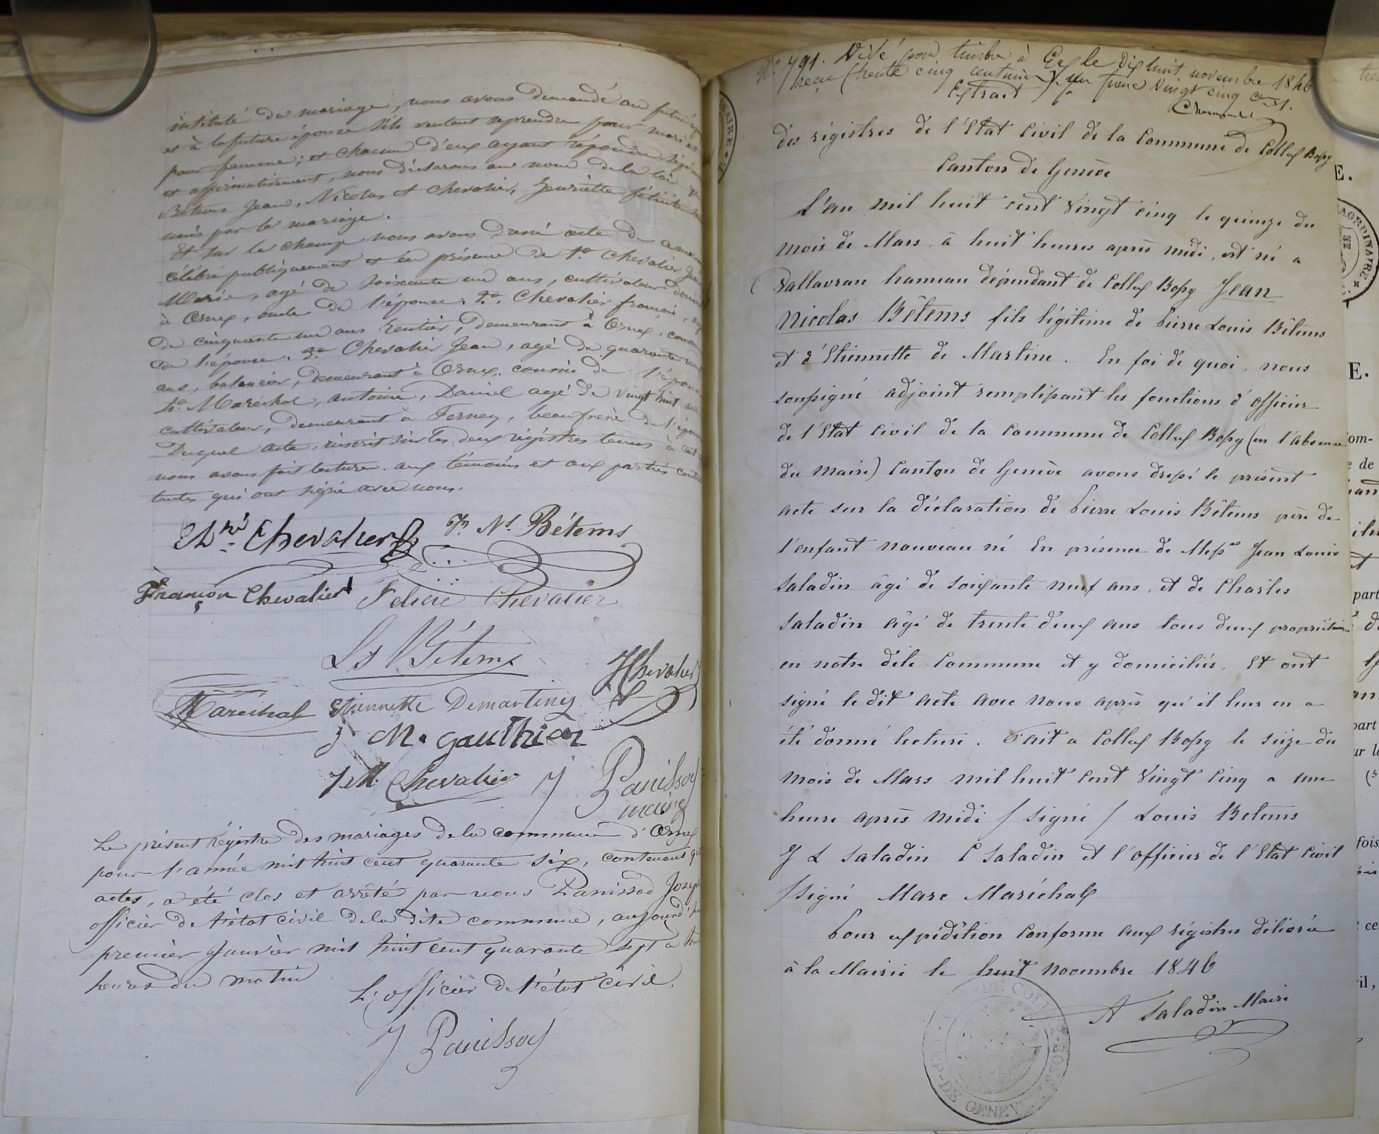 intitulé du mariage, nous avons demandé au futur époux
et à la future épouse s'ils veulent se prendre pour mari et
pour femme; et chacun d'eux ayant répondu séparément
et affirmativement, nous déclarons au nom de la loi que
Bétems Jean, Nicolas et Chevalier, Henriette Félicité sont
unis par le mariage.
Et sur le champ nous avons dressé acte de
célébré publiquement et en présence de 1º Chevalier
Marie, agé de soixante un ans, cultivateur
à Ornex, oncle de l'épouse; 2º Chevalier françois, agé
de cinquante un ans rentier, demeurant à Ornex, cousin
de l'épouse; 3º Chevalier Jean, agé de quarante
ans, demeurant à Ornex, cousin de l'épouse
4º Maréchal, antoine, Daniel agé de vingt huit ans
cultivateur, demeurant à Ferney, beaufrère de l'époux
Duquel acte, inscrit sur les deux régistres tenus à cet
nous avons fait lecture aux témoins et aux parties
tantes qui ont signé avec nous.
Chevalier J. Ns. Bétems
françois Chevalier Félicie Chevalier
Ls Bétems
J Chevalier
Maréchal Etiennette Demartines
J M. gauthier
J M Chevalier J Panissod
maire
Le présent Régistre des mariages de la commune d'Ornex
pour l'année mil huit cent quarante six, contenant
actes, a été clos et arrêté par nous Panissod Joseph
officier de l'état civil de la dite commune, aujourd'hui
premier Janvier mil huit cent quarante sept à
heures du matin
L'officier de l'état civil.
J Panissod
Nº 791. Visé pour timbre à Gex le dix huit novembre 1846
reçu trente cinq centimes un franc vingt cinq c.
Extrait
des régistres de l'Etat Civil de la Commune de Collex Bossy
Canton de Genève
L'an mil huit cent vingt cinq le quinze du
mois de Mars à huit heures après midi, est né a
Vallavran hameau dépendant de Collex Bossy Jean
Nicolas Bétems fils légitime de Pierre Louis Bétems
et d'Etiennette de Martine. En foi de quoi, nous
soussigné adjoint remplissant les fonctions d'officier
de l'Etat Civil de la Commune de Collex Bossy (en l'absence
du maire) Canton de Genève avons dressé le présent
acte sur la déclaration de Pierre Louis Bétems père de
l'enfant nouveau né En présence de Messrs Jean Louis
Saladin âgé de soixante neuf ans, et de Charles
Saladin âgé de trente deux ans tous deux propriétaires
en notre dite Commune et y domiciliés. Et ont
signé le dit acte avec nous après qu'il leur en a
été donné lecture. Fait a Collex Bossy le seize du
mois de Mars mil huit cent vingt cinq a une
heure après midi / Signé / Louis Betems
J L Saladin C Saladin et l'officier de l'Etat Civil
/ Signé Marc Maréchal
Pour expédition conforme aux régistres délivrée
à la Mairie le huit novembre 1846
A Saladin Maire